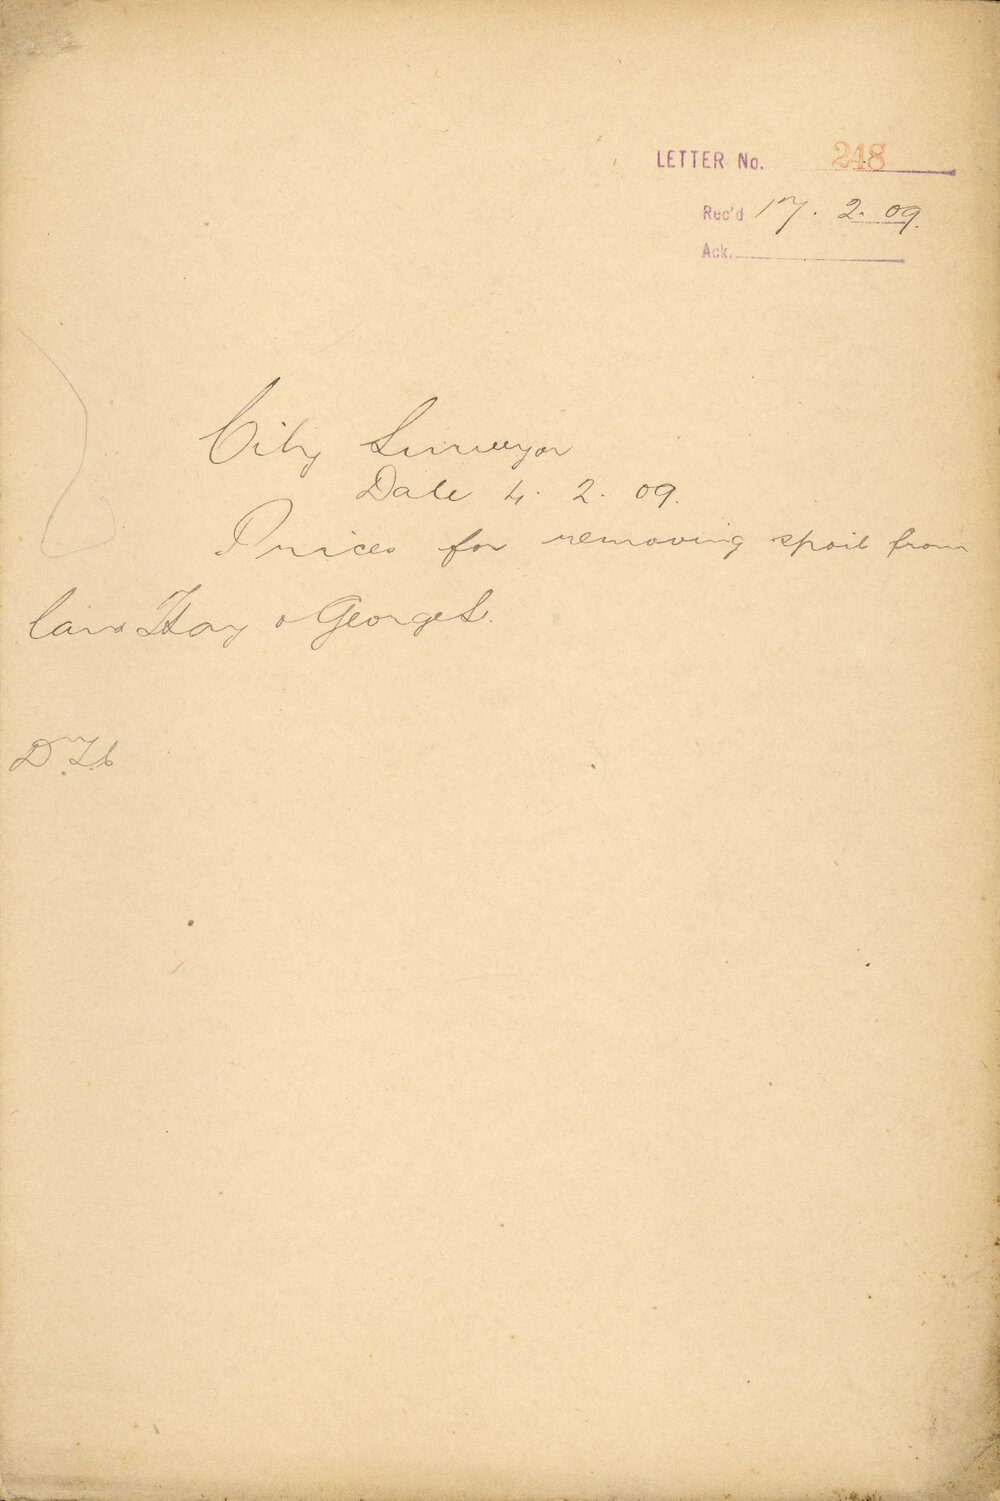 LETTER No. 248
Rec'd 17. 2. 09.
Ack.
City Surveyor
Date 4. 2. 09.
Prices for removing spoil from
Hay & George S.